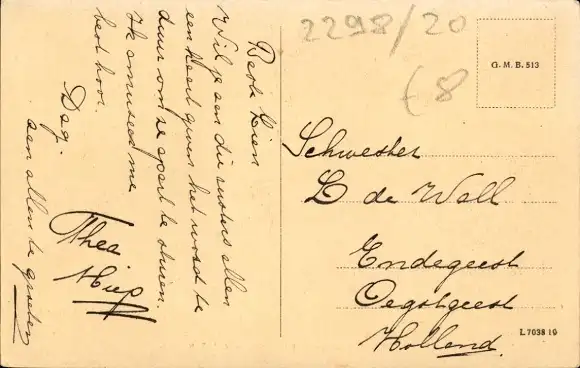 Beste Lien
Wil je aan die zusters allen
een kaart geven het word te
duur om ze apart te sturen.
Ik amuseer me
best hoor.
Dag.
aan allen te groeten
Thea
Miep
2298/20
€8
G.M.B. 513
Schwester
L de Wall
Endegeest
Oegstgeest
Holland.
L 7038 19